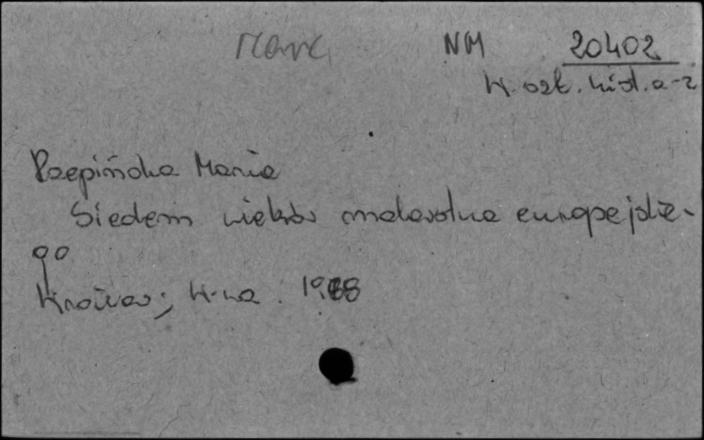 NM 20402
szt. hist. a-z
Rzepińska Maria
Siedem wieków malarstwa europejskie-
go
Kraków; W-wa. 1988